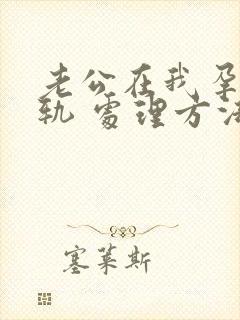 老公在我孕
轨 处理方法
塞莱斯